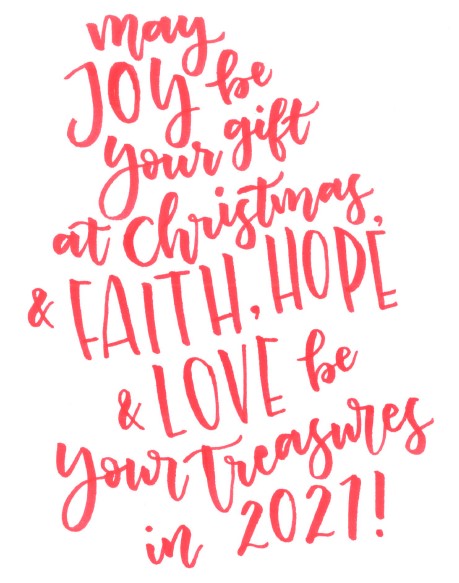 may
JOY be
your gift
at Christmas,
& FAITH, HOPE
& LOVE be
your treasures
in 2021!